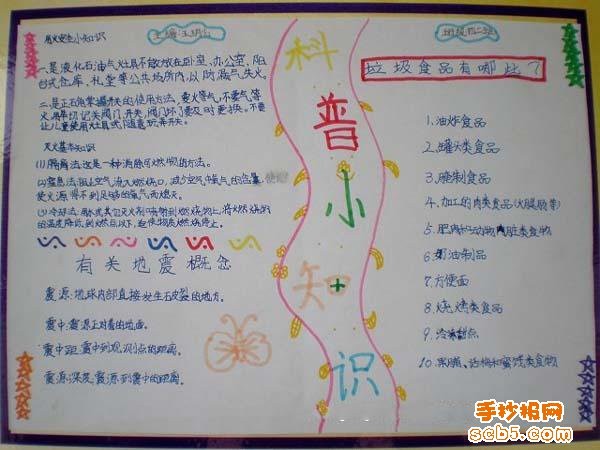 主编:王明
用火安全小知识
一是液化石油气灶具不能放在卧室、办公室、阳
台式仓库、礼堂等公共场所内,以防漏气失火。
二是正确掌握开关的使用方法,要火等气,不要气等
火,用毕切记关阀门、开关,阀门坏了要及时更换。不要
让儿童使用灶具或随意玩弄开关。
灭火基本知识
(1)隔离法:这是一种消除可燃物的方法。
(2)窒息法:阻止空气流入燃烧区,减少空气中氧气的含量,使
火源得不到足够的氧气而熄灭。
(3)冷却法:用水或其它灭火剂喷射到燃烧物上,将燃烧物的
的温度降低到燃点以下,迫使物质燃烧停止。
有关地震概念
震源:地球内部直接发生破裂的地方。
震中:震源正对着的地面。
震中距:震中到观测点的距离。
震源深度:震源到震中的距离。
科
普
小
知
识
班级:四二班
垃圾食品有哪些?
1.油炸食品
2.罐头类食品
3.腌制食品
4.加工的肉类食品(火腿肠等)
5.肥肉和动物内脏类食物
6.奶油制品
7.方便面
8.烧烤类食品
9.冷冻甜点
10.果脯、话梅和蜜饯类食物
手抄报网
scb5.com